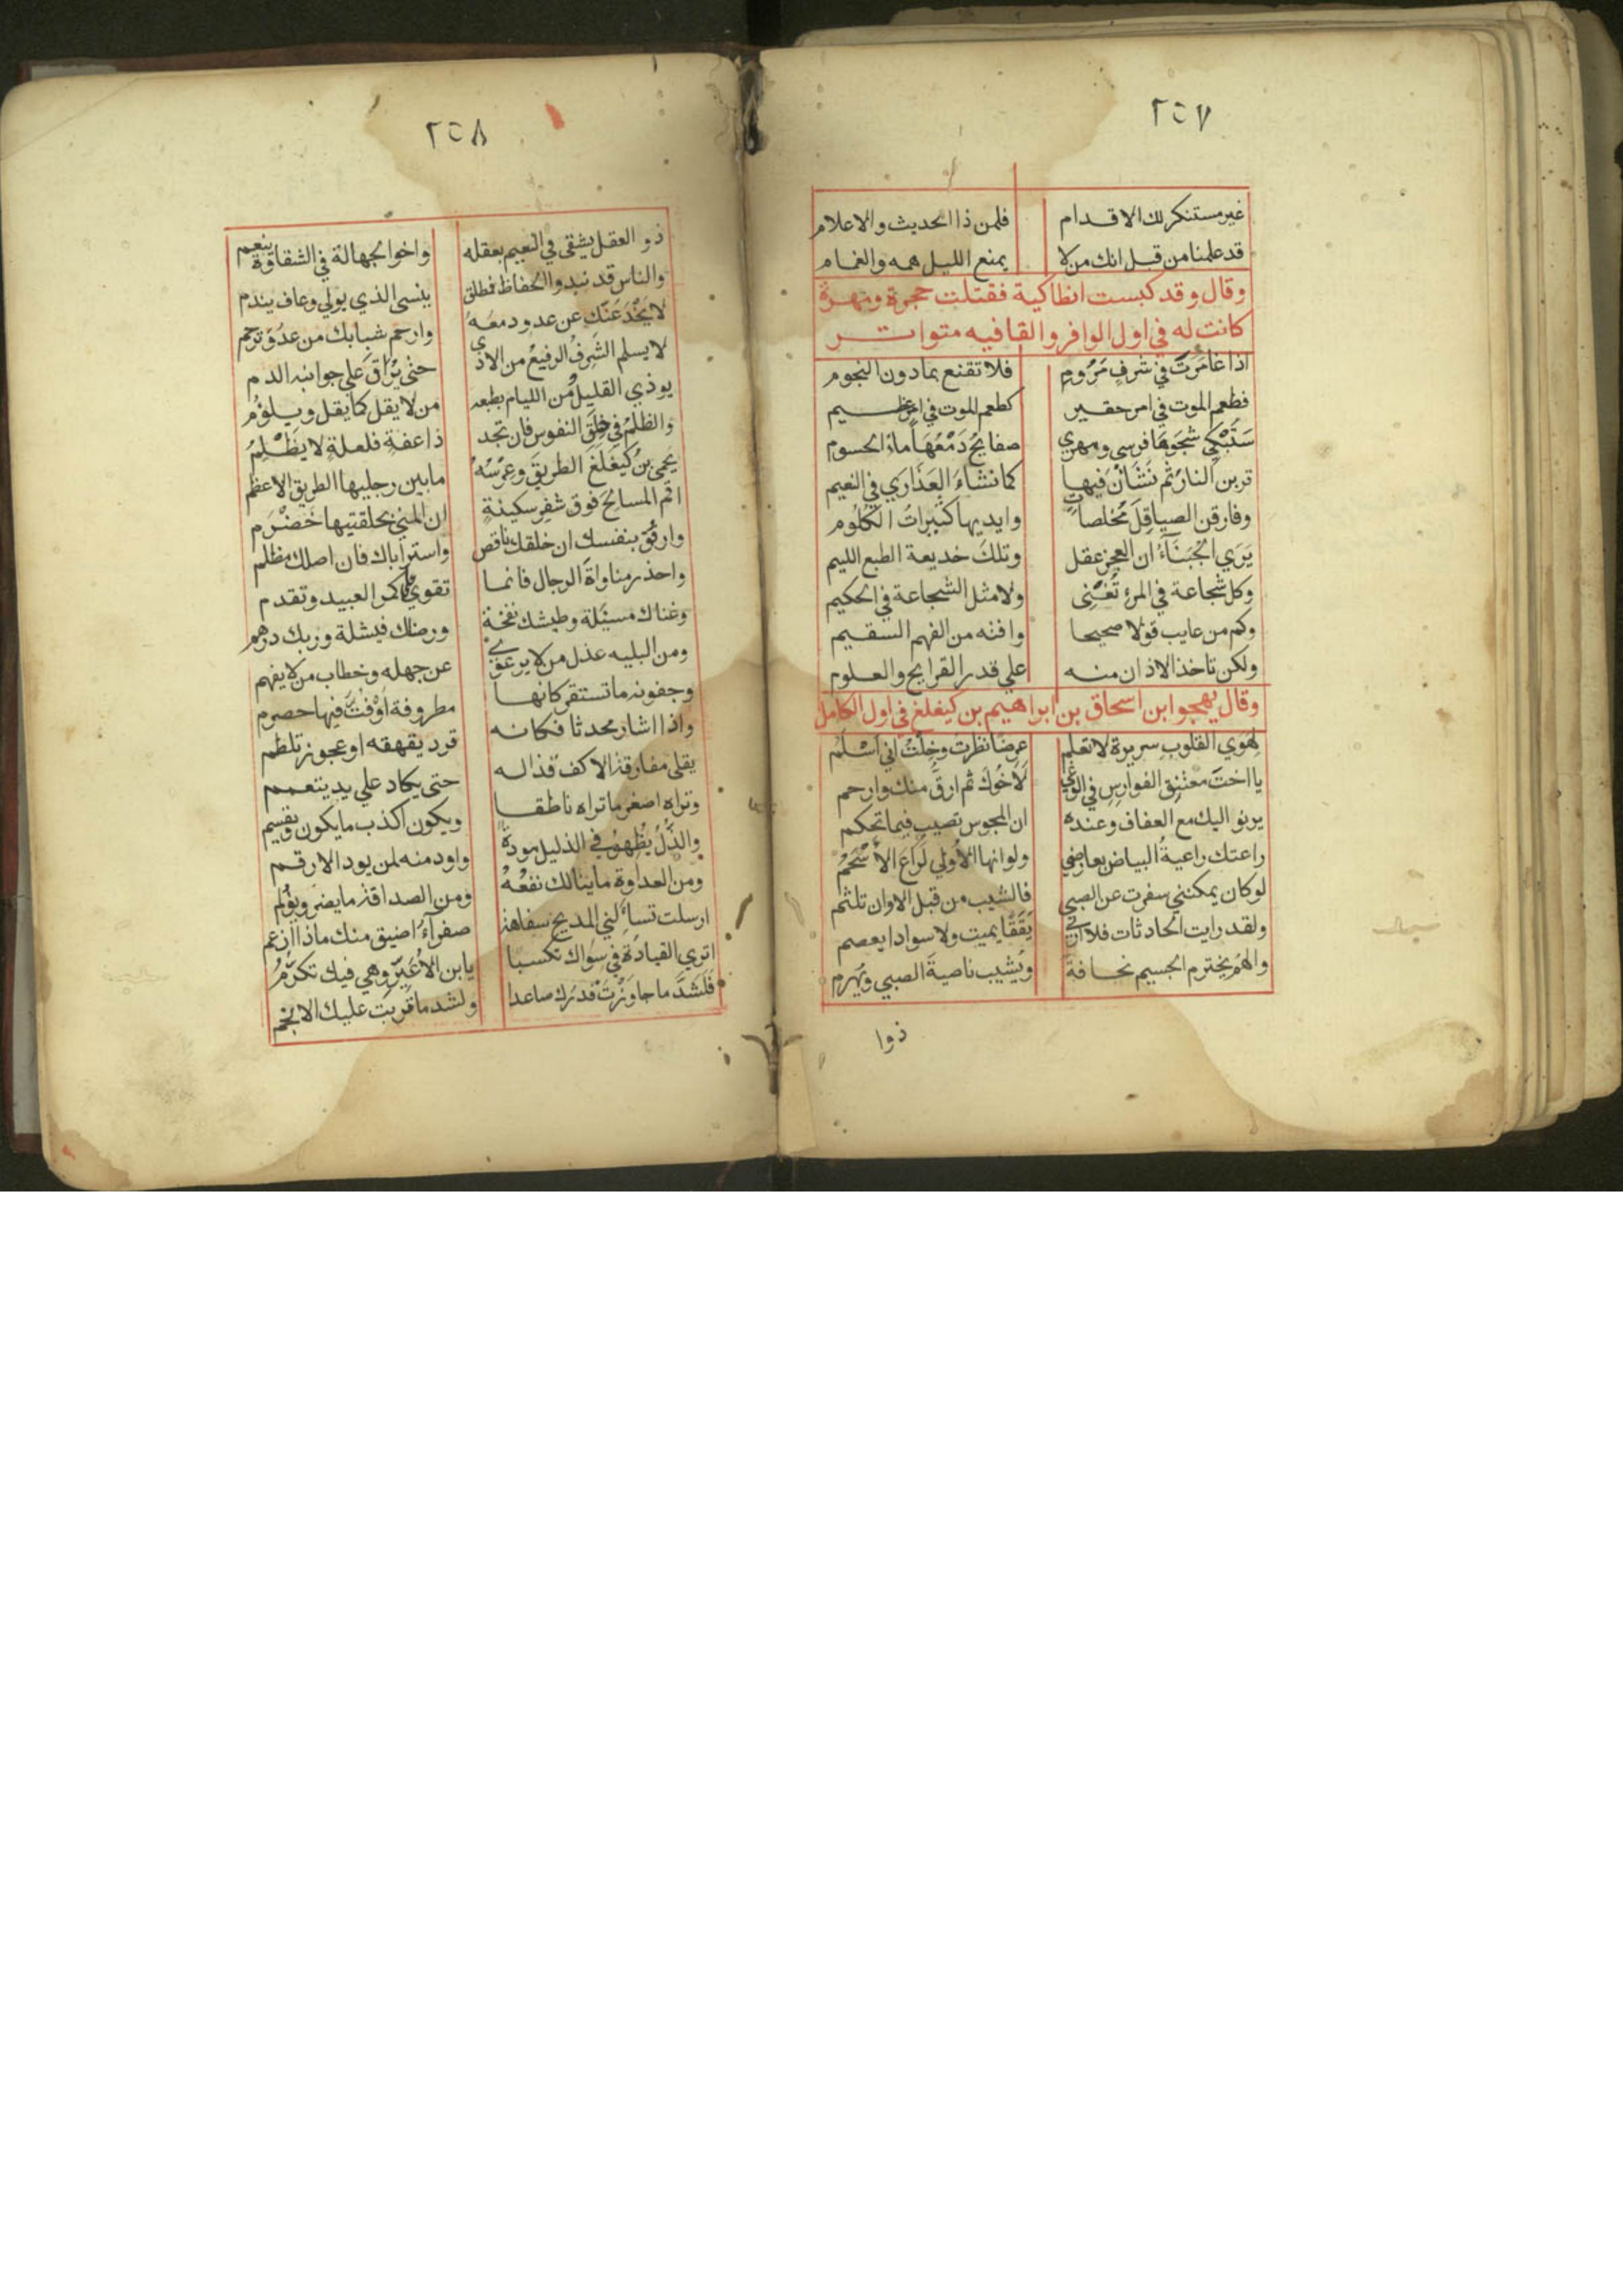 ٢٥٧
غير مستنكر لك الاقدام فلمن ذا الحديث والاعلام
قد علمنا من قبل انك من لا يمنع الليل همه والغمام
وقال وقد كبست انطاكية فقتلت حجرة ومهرة
كانت له في اول الوافر والقافيه متواتر
اذا غامَرتَ في شرفٍ مَرُومٍ فلا تقنع بمادون النجوم
فطعم الموت في امر حقير كطعم الموت في امر عظيم
سَتَبْكي شَجَوهَا فرسي ومهري صفايحُ دَمْعُهَا ماءُ الجسوم
قربن النارَ ثم نَشَأنْ فيها كما نشاءَ العَذَارَي في النعيم
وفارقن الصياقِلَ مُخلصاتٍ وايديها كثيراتُ الكُلُوم
يَرَي الجُبَنَآءُ ان العجز عقل وتلك خديعة الطبع الليم
وكل شجاعة في المرء تُغنِى ولا مثل الشجاعة في الحكيم
وكم من عايب قولا صحيحا وافته من الفهم السقيم
ولكن تاخذ الاذان منه علي قدر القرايح والعلوم
وقال يهجوا بن اسحاق بن ابراهيم بن كيغلغ في اول الكامل
لِهَوي القلوبِ سريرة لا تعلم عرضًا نظرتُ وخِلْتُ اني اَسْلَمُ
يا اختَ معتنِق الفوارِسِ في الوَغَي لَأخُوكَ ثم ارقُّ منك وارحم
يرنو اليك مع العفاف وعنده ان المجوس تصيب فيما تحكم
راعتك راعيةُ البياض بعارضي ولو انها الأُولي لَرَاعَ الأَسْحَمُ
لو كان يمكنني سفرت عن الصبى فالشيب من قبل الاوان تلثم
ولقد رايت الحادثات فلا اري يَقَقًا يميت ولا سوادا يعصم
والهَمُ يخترم الجسيم نحافةً ويُشيب ناصيةَ الصبي ويُهرم
ذوا
٢٥٨
ذو العقل يشقى في النعيم بعقله واخوا الجهالة في الشقاوة ينعم
والناس قد نبدوا الحفاظ فمطلق ينسى الذي يولي وعاف يندم
لا يَخْدَعَنَّك عن عدو دمعه وارحم شبابك من عدُوّ ترحم
لا يسلم الشرفُ الرفيعُ من الاذي حتى يُراق علي جوانبه الدم
يوذي القليل من الليام بطبعه من لا يقل كما يقل ويلؤمُ
والظلمُ في خِلَقِ النفوس فان تجد ذا عفةٍ فلعلةٍ لا يَظْلِمُ
يحمى بن كيغلغ الطريق وعرسه مابين رجليها الطريق الاعظم
اقم المسالح فوق شفر سكينةٍ ان المني بحلقتيها خضرم
وارفق بنفسك ان خلقك ناقص واستر اباك فان اصلك مظلم
واحذر مناواة الرجال فانما تقوي كمر العبيد وتقدم
وغناك مسئلة وطيشك نفخة ورضاك فيشلة وربك درهم
ومن البليه عذل من لا يرعوي عن جهله وخطاب من لا يفهم
وجفونه ما تستقر كانها مطروفة اَوْ فُتّ فيها حصرم
واذا اشار محدثا فكانه قرد يقهقه او عجوز تلطم
يقلى مفارقة الاكف قذاله حتى يكاد علي يد يتعمم
وتراه اصغر ما تراه ناطقا ويكون اكذب ما يكون ويقسم
والذُّلُ يُظْهِرُ في الذليل مودةً واود منه لمن يود الارقم
ومن العداوة ما ينالك نفعُهُ ومن الصداقة ما يضر ويؤلم
ارسلت تسأَلني المديح سفاهة صفرآءُ اضيق منك ماذا ازعم
اتري القيادَةَ في سِوَاك تكسبا يا بن الأُعَيّرِ وهي فيك تكرُّمُ
فَلَشَدَّ ما جاوَزْتَ قدرَك صاعدا ولشد ما قربت عليك الانجم